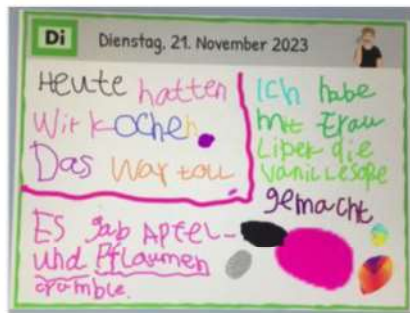 Di
Dienstag, 21. November 2023
Heute hatten
Wir kochen.
Das war toll.
Ich habe
mit Frau
Liper die
vanillesoße
gemacht
ES gab APfel-
und Pflaumen
cramble.